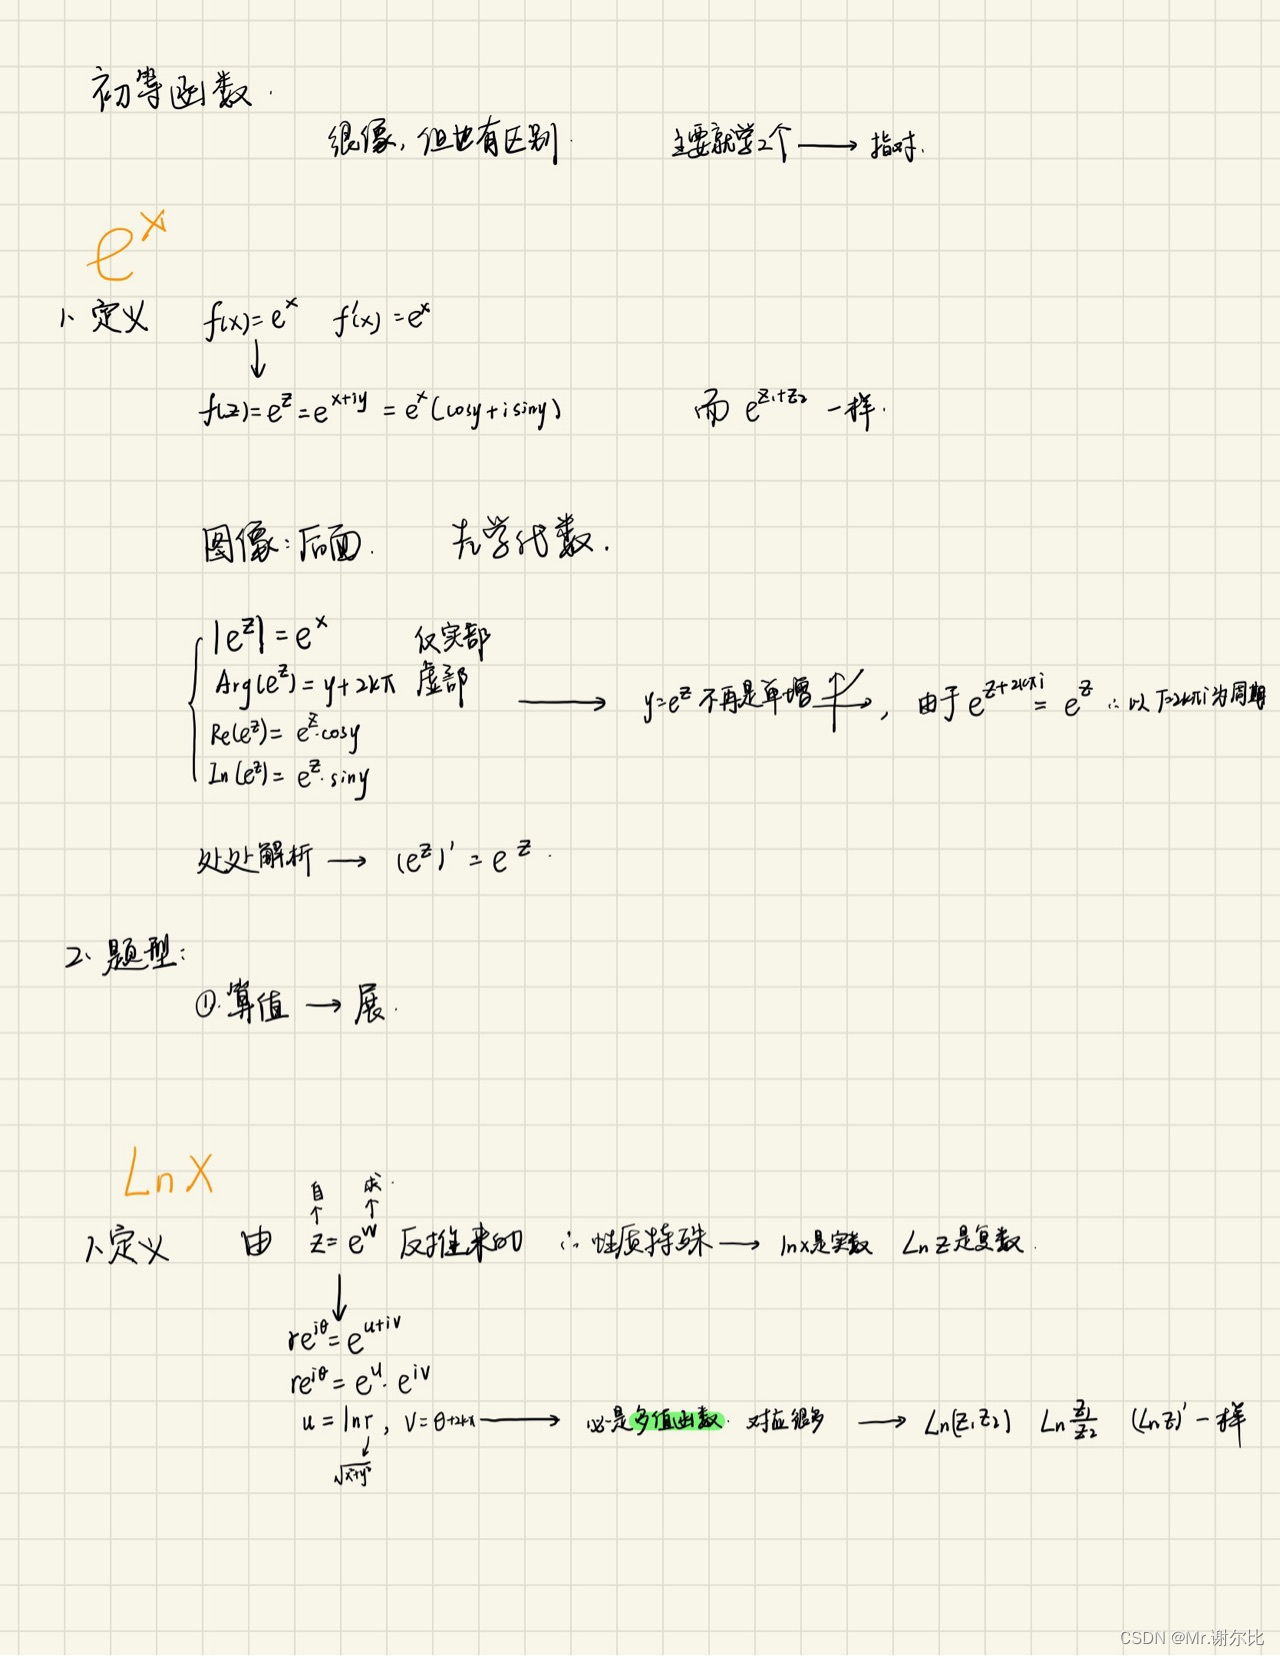 初等函数.
很像，但也有区别. 主要就学2个 → 指对.
e^x
1、定义 f(x)=e^x f'(x)=e^x
↓
f(z)=e^z=e^{x+iy}=e^x(cosy+isiny) 而 e^{z₁+z₂} 一样.
图像：后面. 先学代数.
|e^z|=e^x 仅实部
Arg(e^z)=y+2kπ 虚部 → y=e^z 不再是单增, 由于 e^{z+2kπi}=e^z ∴以T=2kπi为周期
Re(e^z)=e^z·cosy
In(e^z)=e^z·siny
处处解析 → (e^z)'=e^z.
2、题型：
①.算值 → 展.
LnX
自 求.
↑ ↑
1、定义 由 z=e^w 反推来的 ∴性质特殊 → lnx是实数 Lnz是复数.
↓
re^{iθ}=e^{u+iv}
re^{iθ}=e^u·e^{iv}
u=lnr, V=θ+2kπ → 必是多值函数. 对应很多 → Ln(z₁z₂) Ln z₁/z₂ (Lnz)'一样
↓
√x²+y²
CSDN @Mr.谢尔比